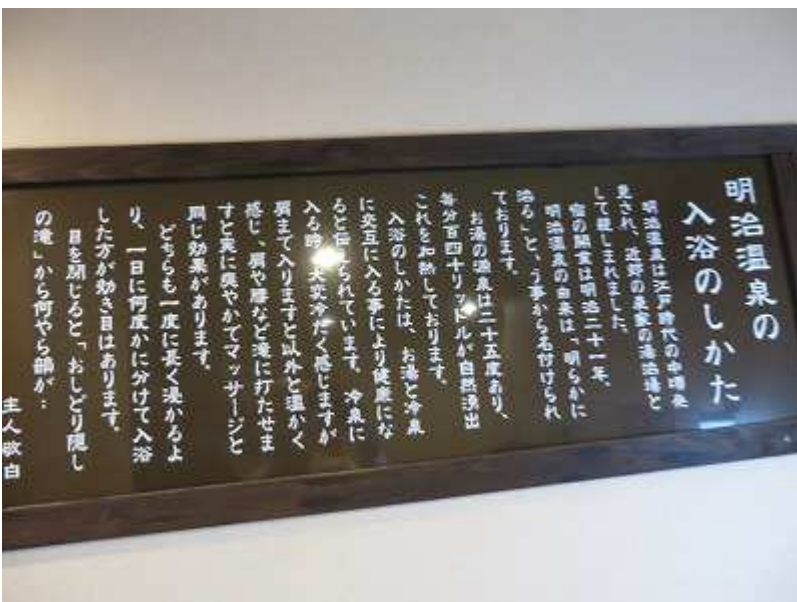 明治温泉の
入浴のしかた
明治温泉は江戸時代の中頃発
見され、近野の農家の湯治場と
して親しまれました。
宿の開業は明治二十一年、
明治温泉の由来は、「明らかに
治る」と、う事から名付けられ
ております。
お湯の源泉は二十五度あり、
毎分百四十リットルが自然湧出
これを加熱しております。
入浴のしかたは、お湯と冷泉
に交互に入る事により健康にな
ると伝えられています。冷泉に
入る時、大変冷たく感じますが
肩まで入りますと以外と温かく
感じ、肩や腰など滝に打たせま
すと実に爽やかでマッサージと
同じ効果があります。
どちらも一度に長く浸かるよ
り、一日に何度かに分けて入浴
した方が効き目はあります。
目を閉じると「おしどり隠し
の滝」から何やら鶴が:
主人敬白